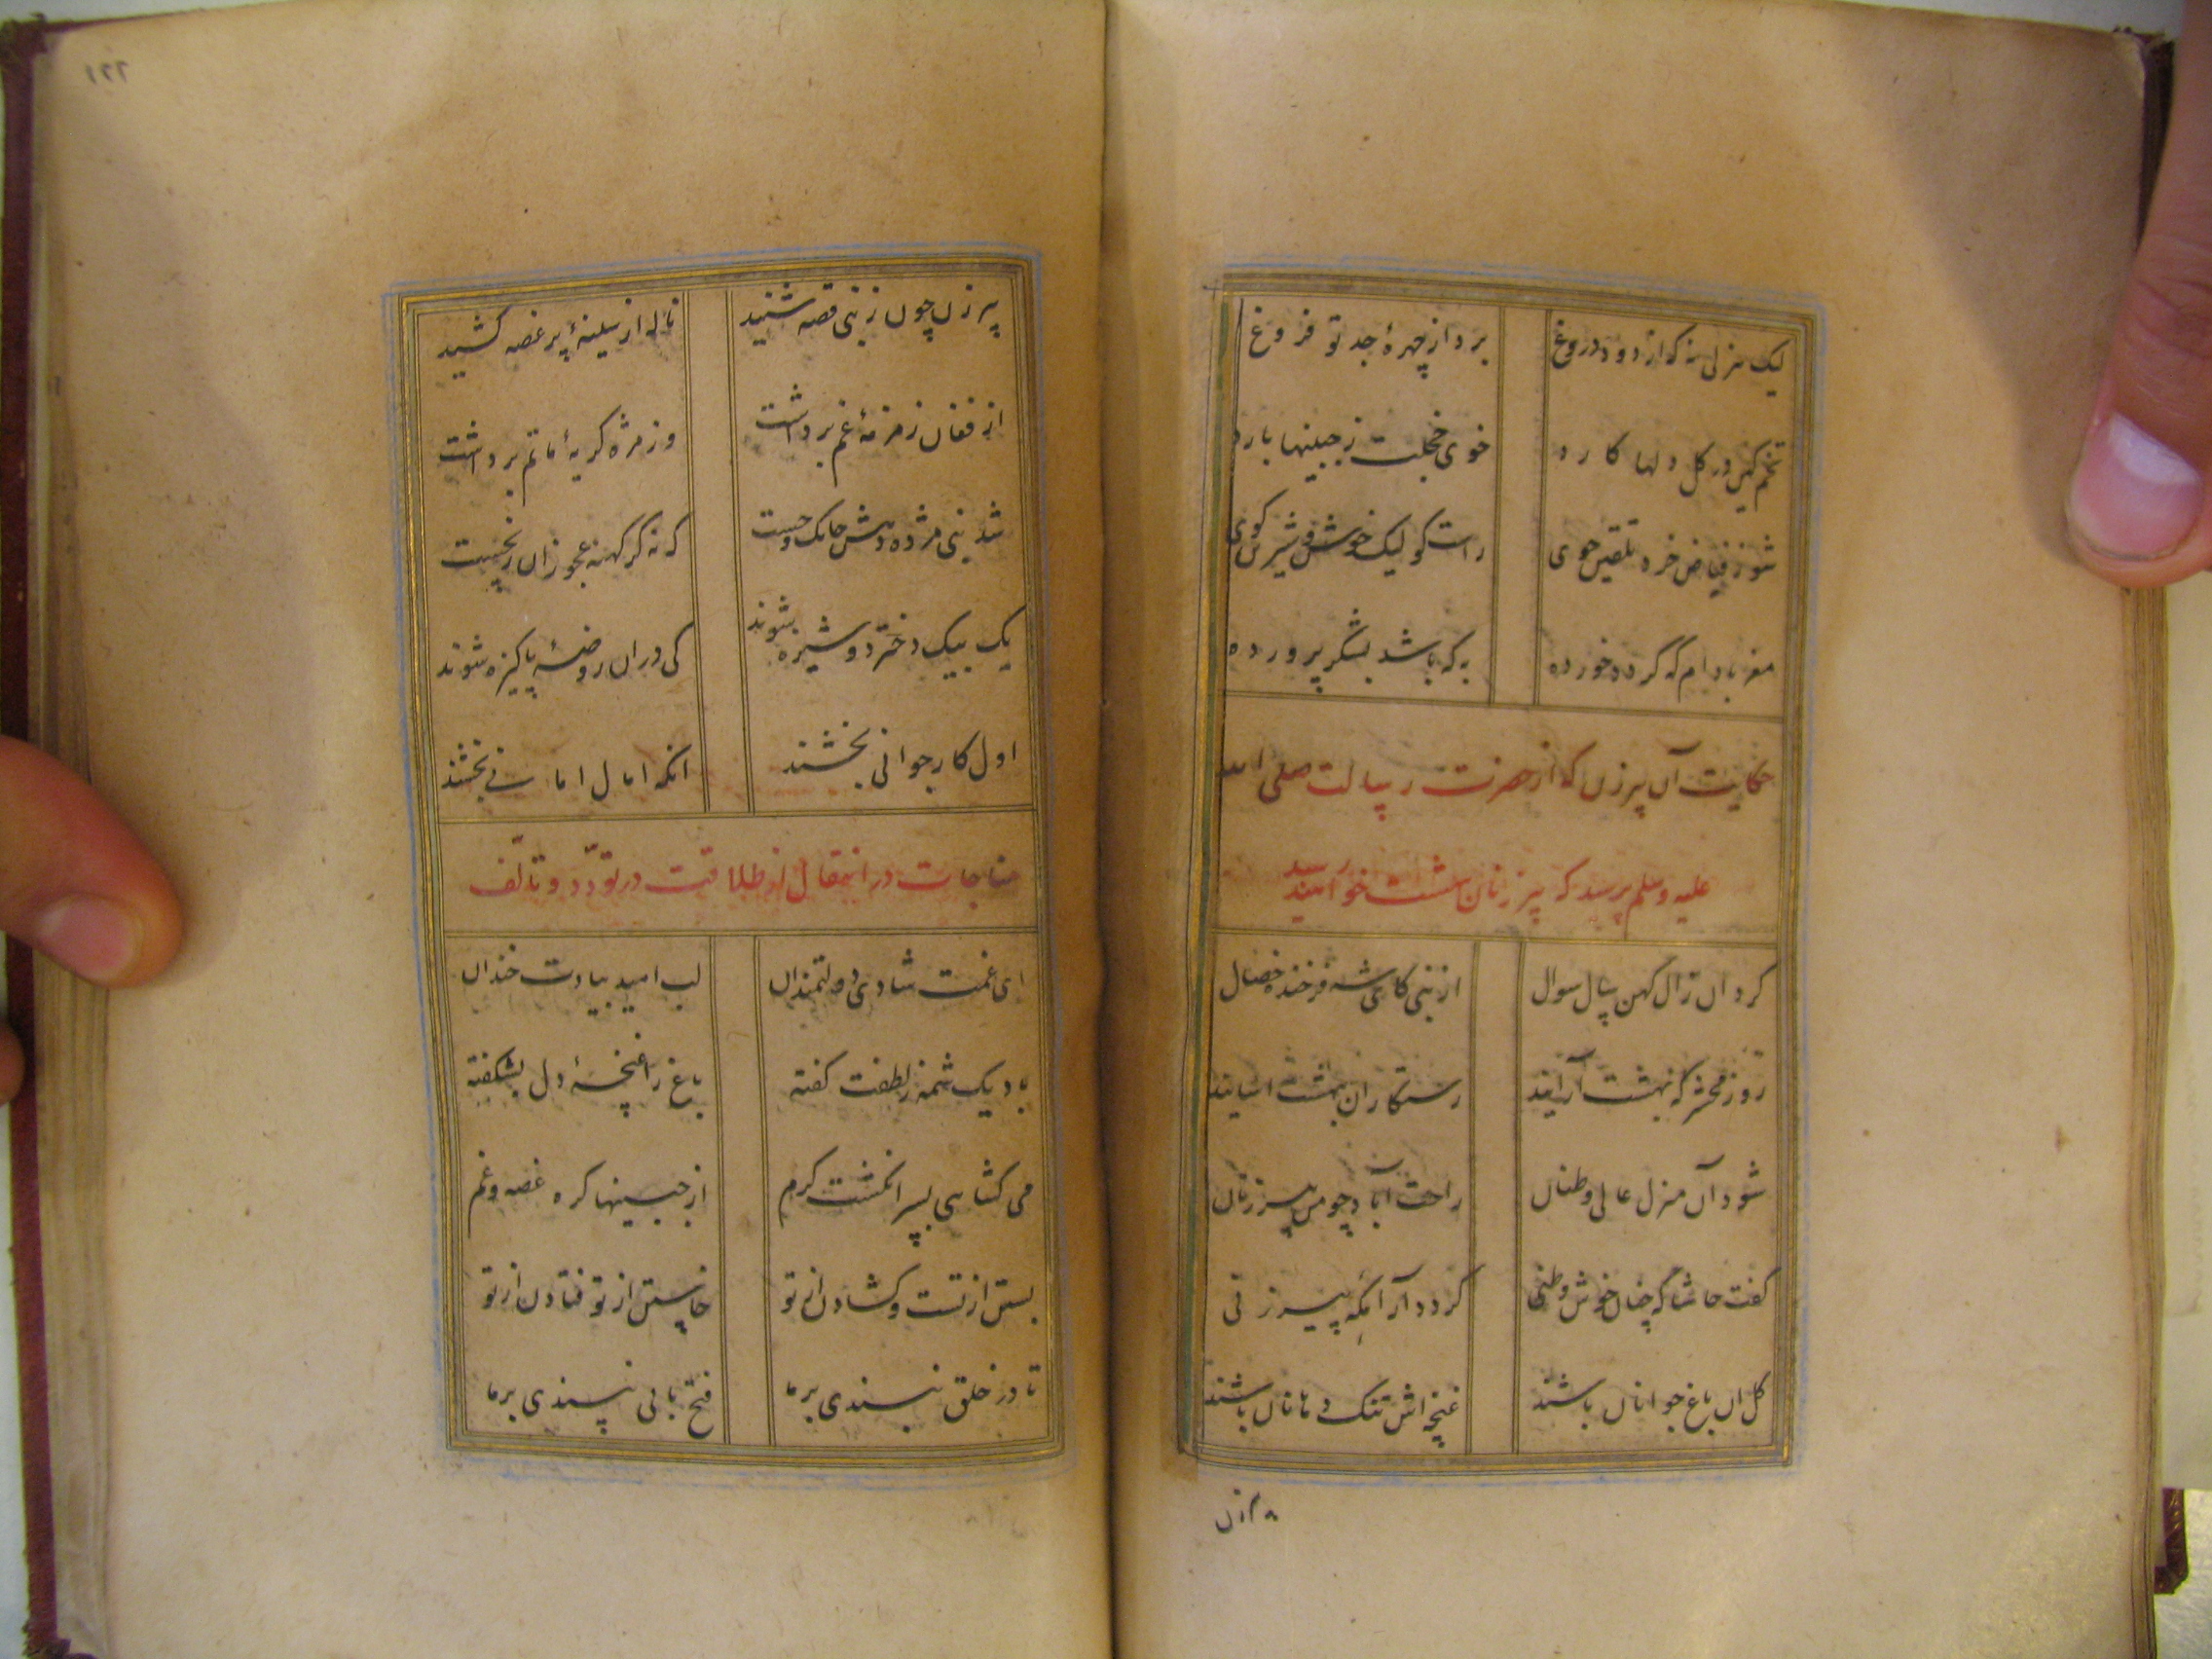 لیک هزلی نه که از دود دروغ
برد از چهرهٔ جد تو فروغ
تخم کین در گل دلها کارد
خوی خجلت ز جبینها بارد
شو ز فیاض خرد تلقین جوی
راست گو لیک خوش و شیرین گوی
مغز بادام که گردد خورده
به که باشد بشکر پرورده
حکایت آن پیرزن که از حضرت رسالت صلی الله
علیه و سلم پرسید که پیرزنان بهشت خواهند رسید
کرد آن زال کهن سال سوال
از نبی کای شه فرخنده خصال
روز محشر که بهشت آرایند
رستکاران ببهشت آسایند
شود آن منزل عالی وطنان
راحت آباد چو من پیرزنان
گفت حاشا که چنان خوش وطنی
گردد آرامگه پیرزنی
گل آن باغ جوانان باشند
غنچه اش تنگ دهانان باشند
پیرزن چون ز نبی قصه شنید
ناله از سینهٔ پر غصه کشید
از فغان زمزمهٔ غم برداشت
وز مژه گریهٔ ماتم برداشت
شد نبی مژده دهش چابک و چست
که نه گر کهنه عجوزان ز نخست
یک بیک دختر دوشیزه شوند
کی در آن روضهٔ پاکیزه شوند
اول کار جوانی بخشند
آنگه آمال امانی بخشند
مناجات در انتقال از طلاقت در تودد و تالف
ای غمت شادی دولتمندان
لب امید بیادت خندان
باد یک شمه ز لطفت گفته
باغ را غنچهٔ دل بشکفته
می گشایی بسر انگشت کرم
از جبینها گره غصه و غم
بستن از تست و گشادن از تو
خاستن از تو فتادن از تو
تا در خلق نبندی بر ما
فتح بابی نپسندی بر ما